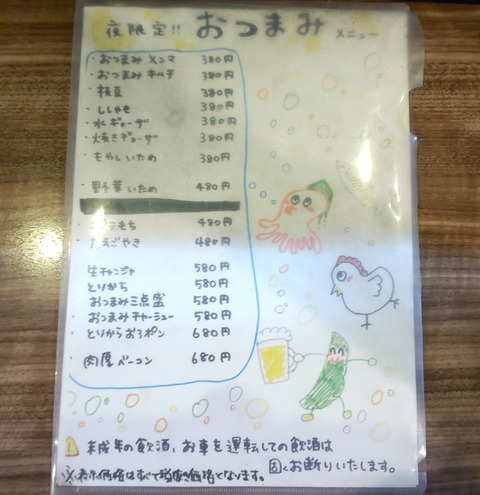 夜限定!! おつまみ メニュー
・おつまみメンマ 380円
・おつまみキムチ 380円
・枝豆 380円
・ししゃも 380円
・水ギョーザ 380円
・焼きギョーザ 380円
・もやしいため 380円
・野菜いため 480円
もち 480円
・たまごやき 480円
・生チャンジャ 580円
・とりかち 580円
おつまみ三点盛 580円
・おつまみチャーシュー 580円
・とりからおろポン 680円
・肉厚ベーコン 680円
未成年の飲酒、お車を運転しての飲酒は
固くお断りいたします。
※表示価格はすべて税抜き価格となります。